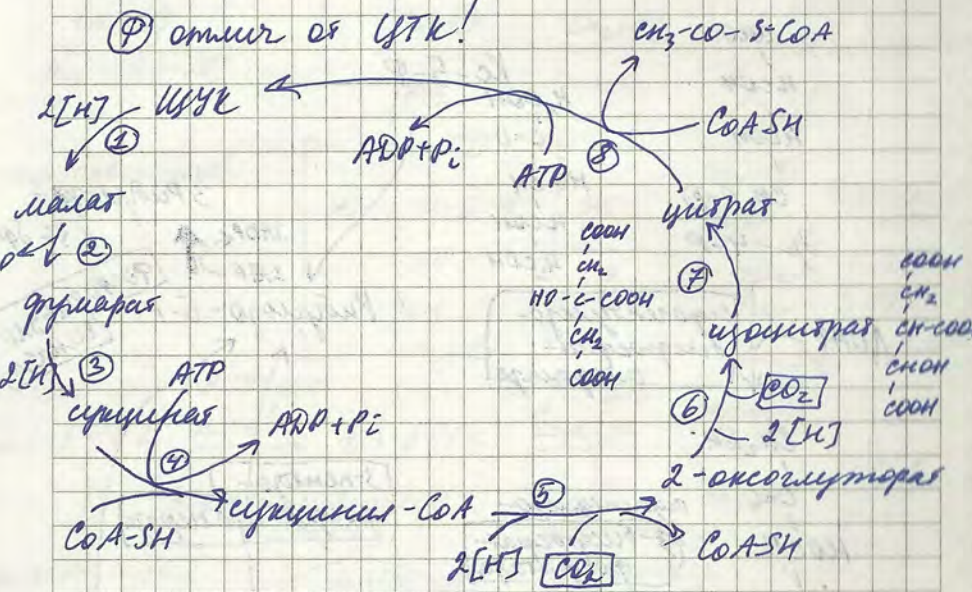 Ⓟ отлич от ЦТК!
CH₃-CO-S-CoA
2[H]
ЩУК
①
ADP+Pi
ATP
⑧
CoASH
малат
②
цитрат
COOH
CH₂
HO-C-COOH
CH₂
COOH
⑦
фумарат
изоцитрат
COOH
CH₂
CH-COO
CHOH
COOH
2[H]
③
ATP
сукцинат
ADP+Pi
④
⑥
CO₂
2[H]
2-оксоглутарат
CoA-SH
сукцинил-CoA
⑤
2[H]
CO₂
CoASH